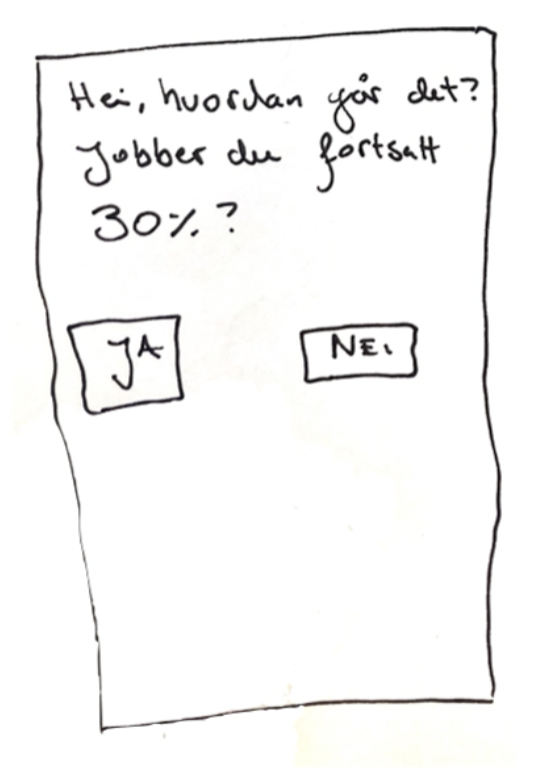 Hei, hvordan går det?
Jobber du fortsatt
30% ?
JA
NEi